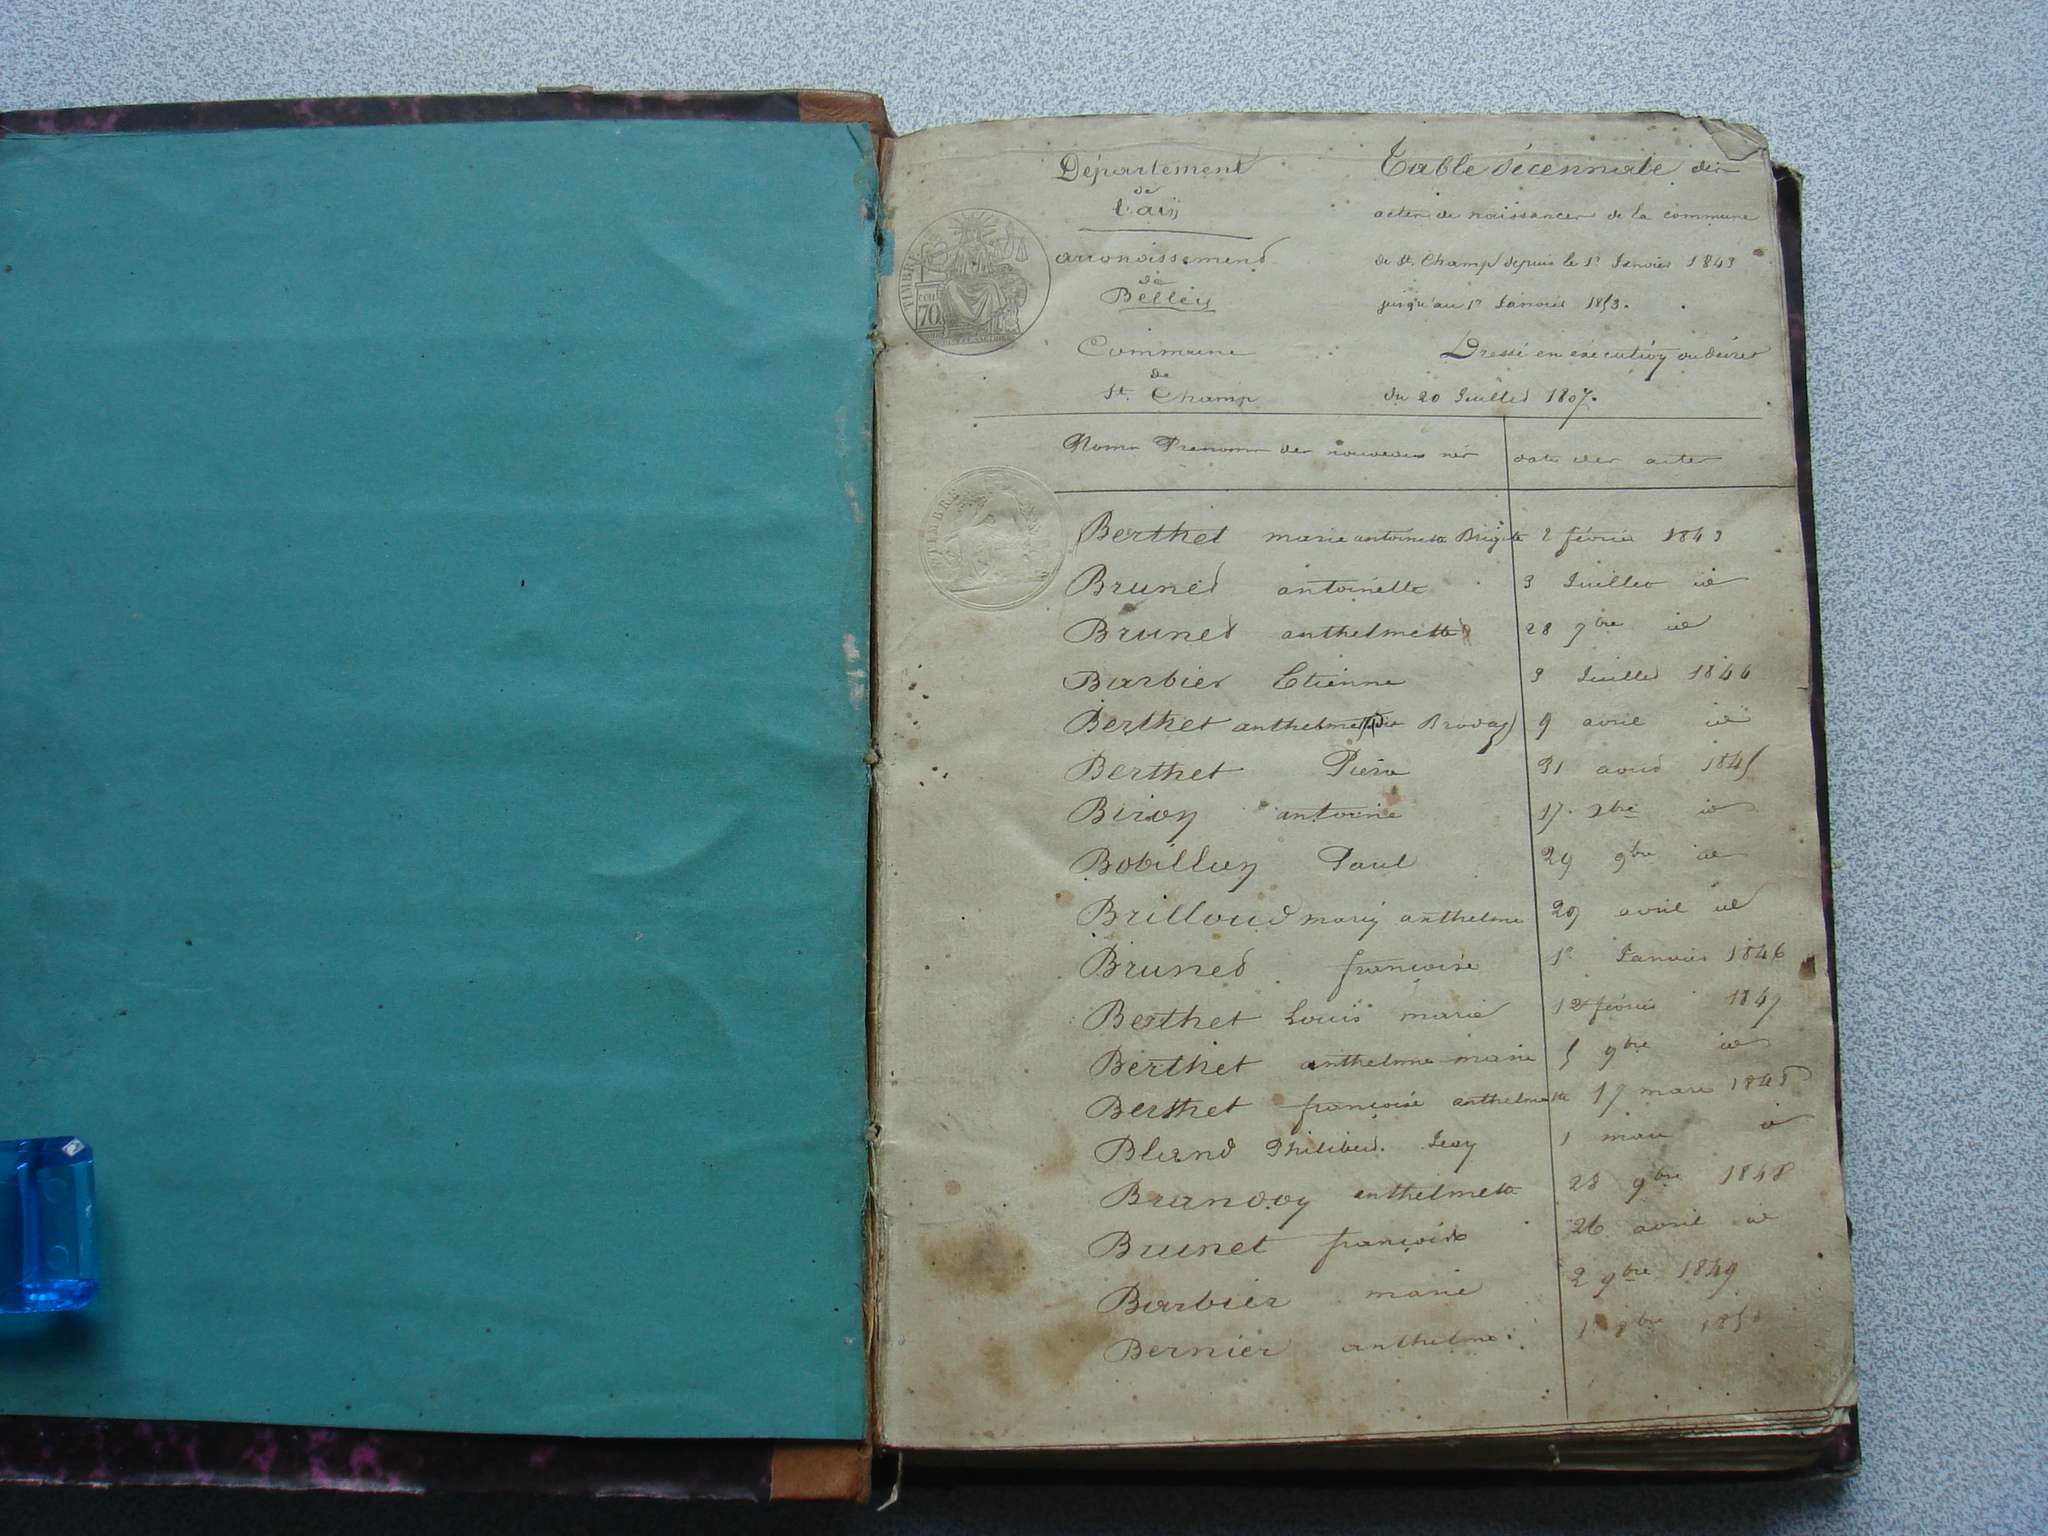 Département
de
l'ain
arrondissement
de
Belley
Commune
de
St. Champ
Table décennale des
actes de naissances de la commune
de St. Champ depuis le 1er Janvier 1843
jusqu'au 1er Janvier 1853.
Dressé en exécution du décret
du 20 Juillet 1807.
TIMBRE
70
TIMBRE
Noms Prenoms des nouveaux nés date des actes
Berthet marie antoinette Brigite 2 février 1843
Brunet antoinette 3 Juillet id
Brunet anthelmette 28 7bre id
Barbier Etienne 3 Juillet 1844
Berthet anthelme 9 avril id
Berthet Pierre 31 1845
Biron antoine 17 Xbre id
Bobillion Paul 29 9bre id
Brilloud mariy anthelme 29 avril id
Brunet françoise 1er Janvier 1846
Berthet Louis marie 12 février 1847
Berthet anthelme marie 5 9bre id
Berthet françoise anthelmette 17 mars 1848
Bland Philibert Jean 1 id
anthelmette 23 9bre 1848
Brunet 26 avril id
Barbier marie 2 9bre 1849
Bernier anthelme 185